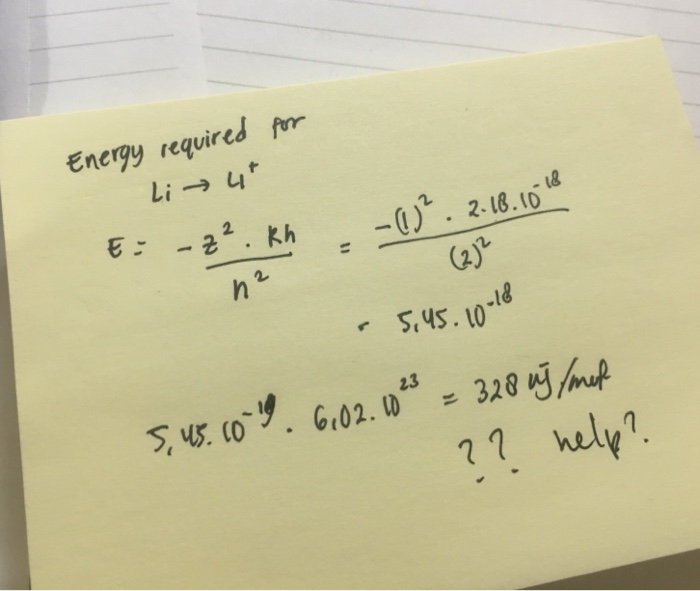 Energy required for
Li → Li⁺
E = -z² · Rh / n² = -(1)² · 2.18.10⁻¹⁸ / (2)²
= 5,45.10⁻¹⁸
5,45.10⁻¹⁹ . 6,02.10²³ = 328 kJ/mol
?? help?